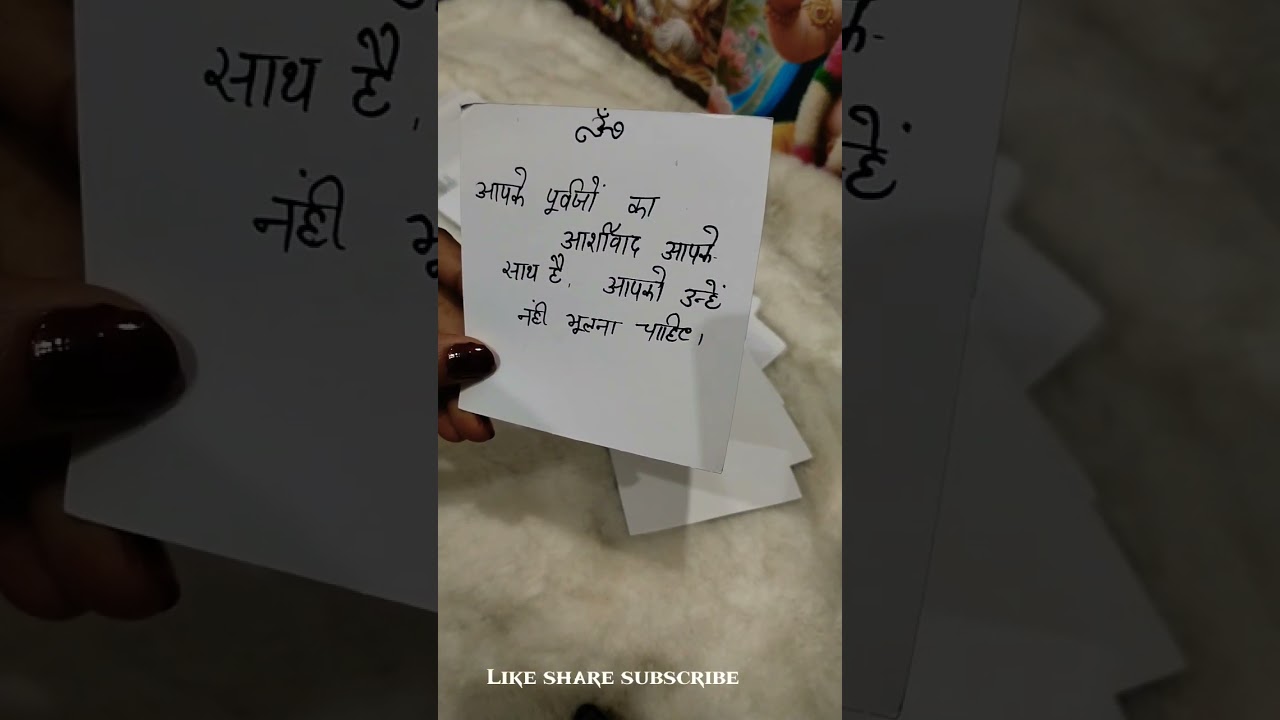 ॐ
आपके पूर्वजों का
आर्शीवाद आपके
साथ है, आपको उन्हें
नंही भूलना चाहिए।
LIKE SHARE SUBSCRIBE